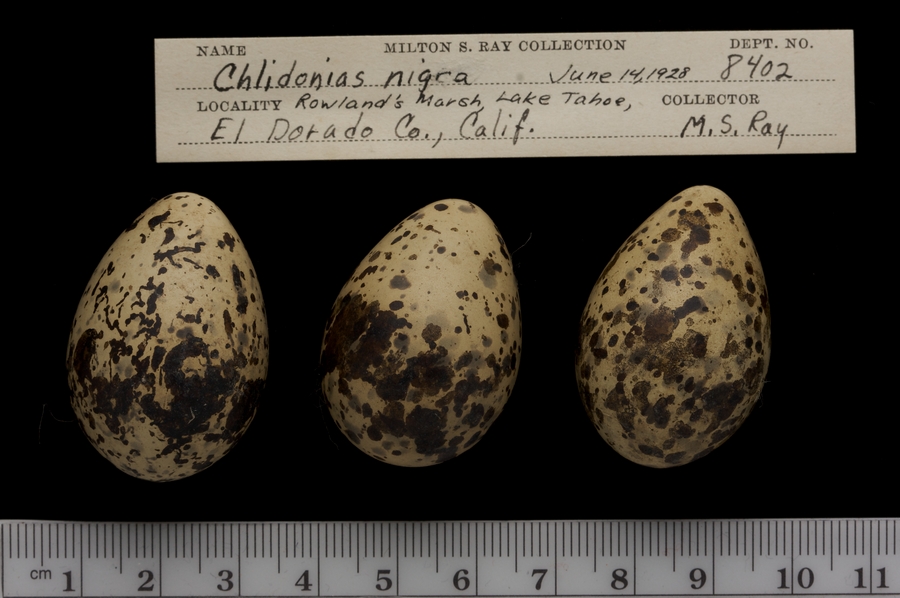 NAME MILTON S. RAY COLLECTION DEPT. NO.
Chlidonias nigra June 14, 1928 8402
LOCALITY Rowland's Marsh, Lake Tahoe, COLLECTOR
El Dorado Co., Calif. M. S. Ray
cm 1 2 3 4 5 6 7 8 9 10 11